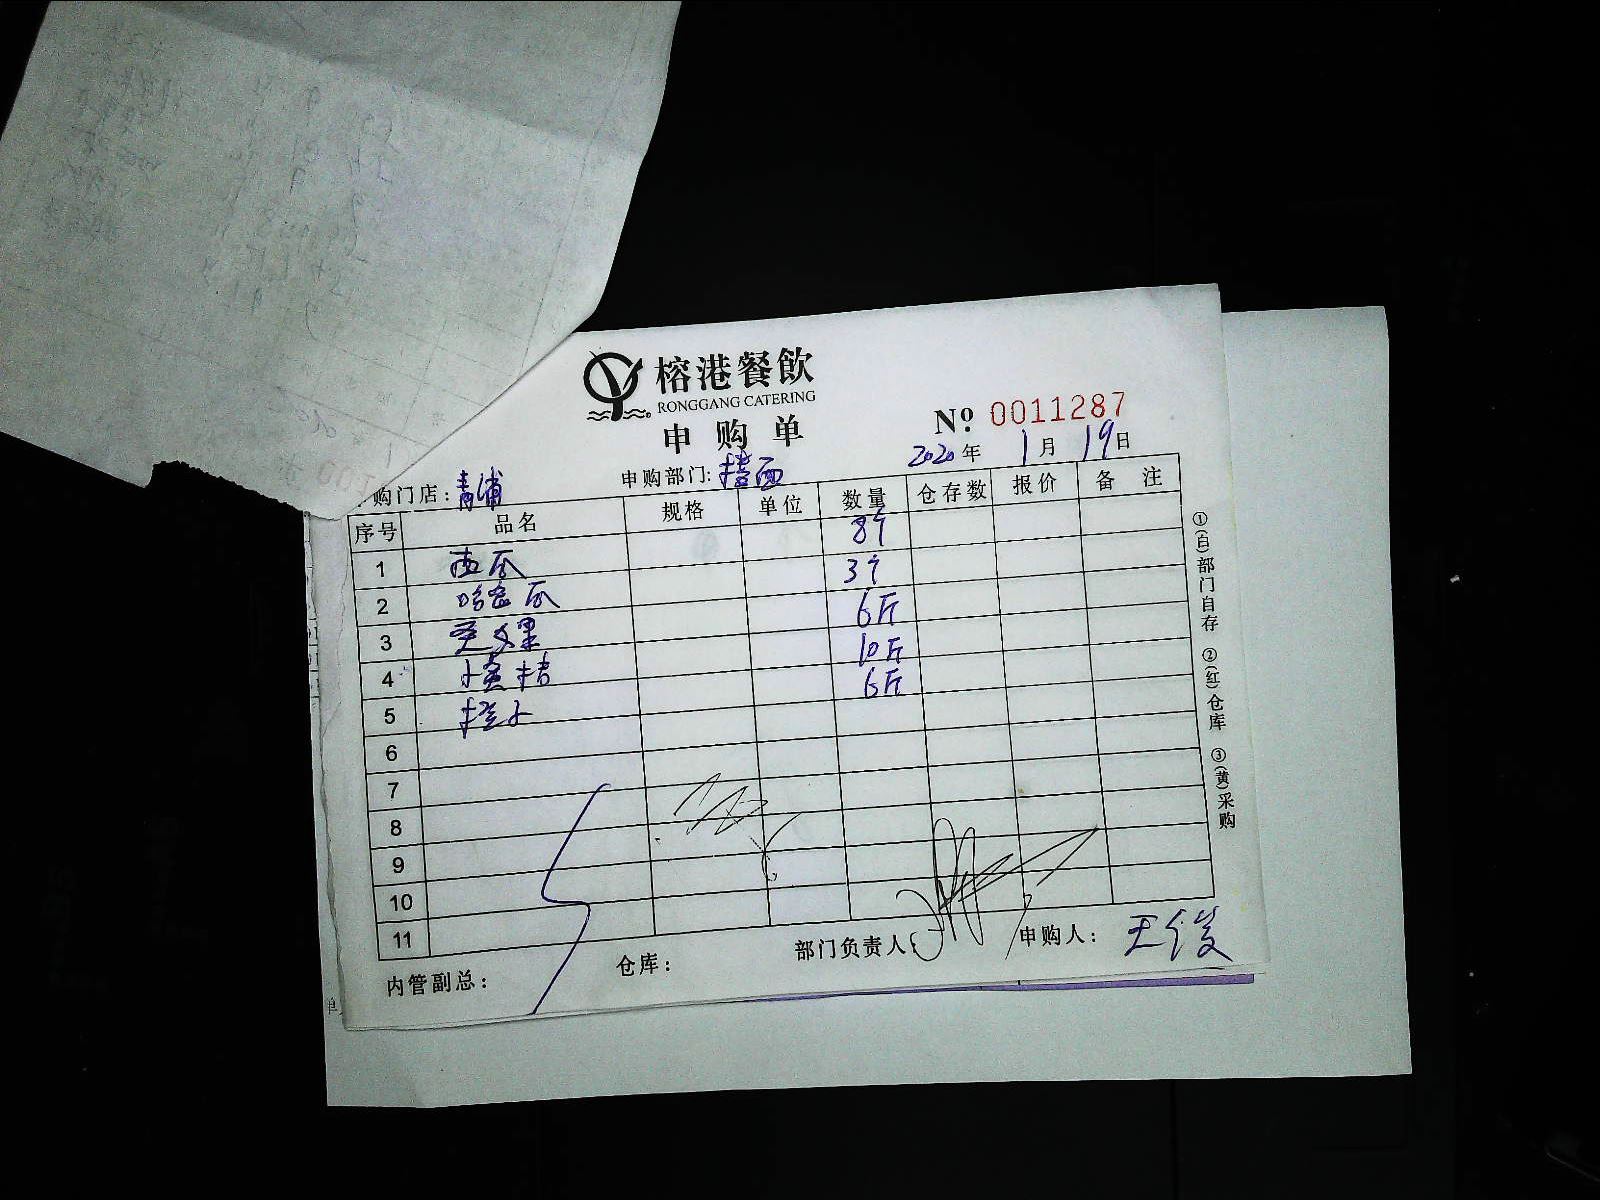 榕港餐飲
RONGGANG CATERING
申购单
№ 0011287
2020年 1月 19日
购门店：青浦 申购部门：楼面
序号 品名 规格 单位 数量 仓存数 报价 备注
1 西瓜 8个
2 哈密瓜 3个
3 圣女果 6斤
4 小蜜桔 10斤
5 橙子 6斤
6
7
8
9
10
11
内管副总： 仓库： 部门负责人： 申购人：王俊
①(白)部门自存 ②(红)仓库 ③(黄)采购